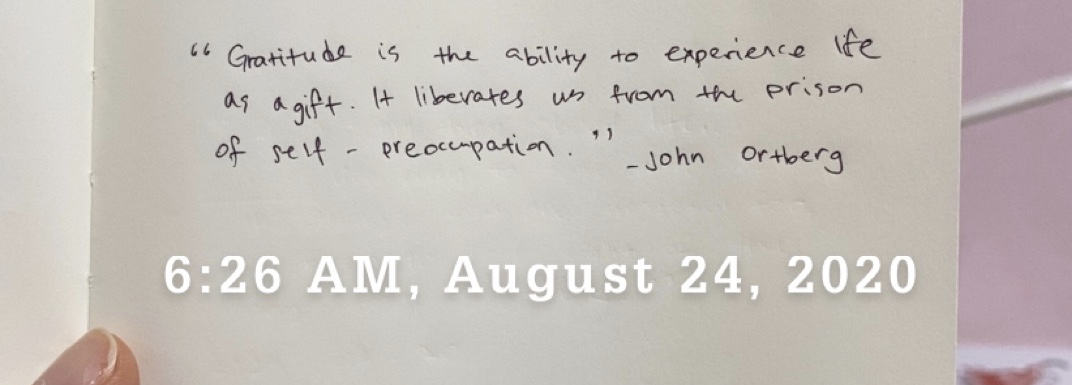 “Gratitude is the ability to experience life
as a gift. It liberates us from the prison
of self - preoccupation.”
- John Ortberg
6:26 AM, August 24, 2020